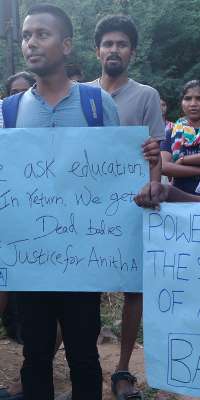 e ask education
In return. We get
Dead bodies
Justice for Anitha
A
POWE
THE S
OF A
BA